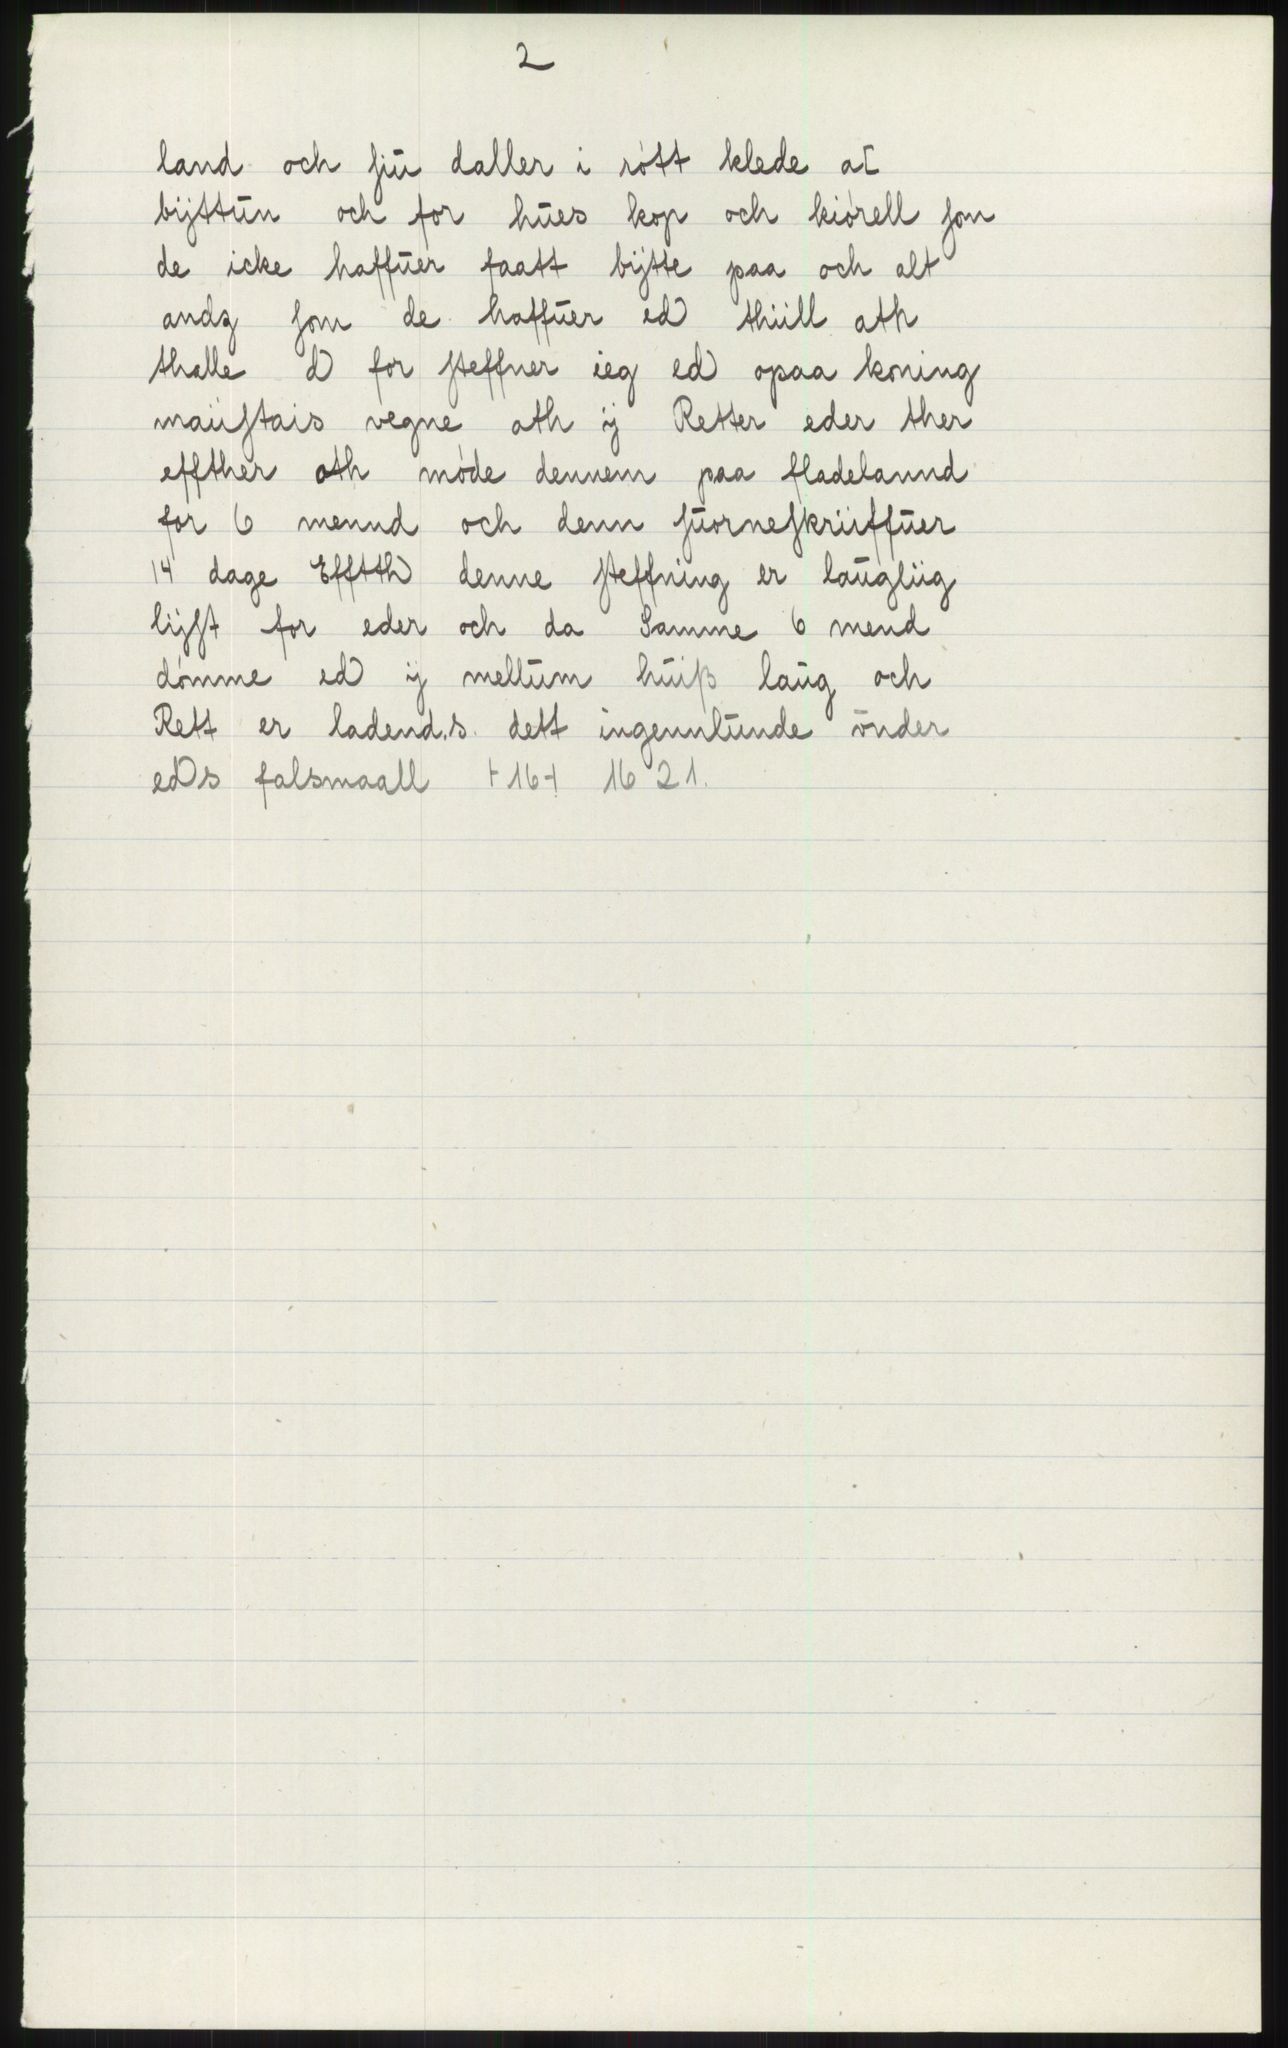 2
land och siu daller i rótt klede at
bijttun och for hues kop och kiórell som
de icke haffuer faatt bijtte paa och alt
andz som de haffuer ed thiill ath
thalle D for steffner ieg eD opaa koning
maiistais vegne ath ij Retter eder ther
effther ath móde dennem paa fladelannd
for 6 mennd och denn suorneskriiffuer
14 dage EfftthD denne steffning er laugliig
lijst for eder och da Samme 6 mend
dómme eD ij mellum huiß laug och
Rett er ladend.s. dett ingennlunde ónder
eDs falsmaall + 16 + 1621.